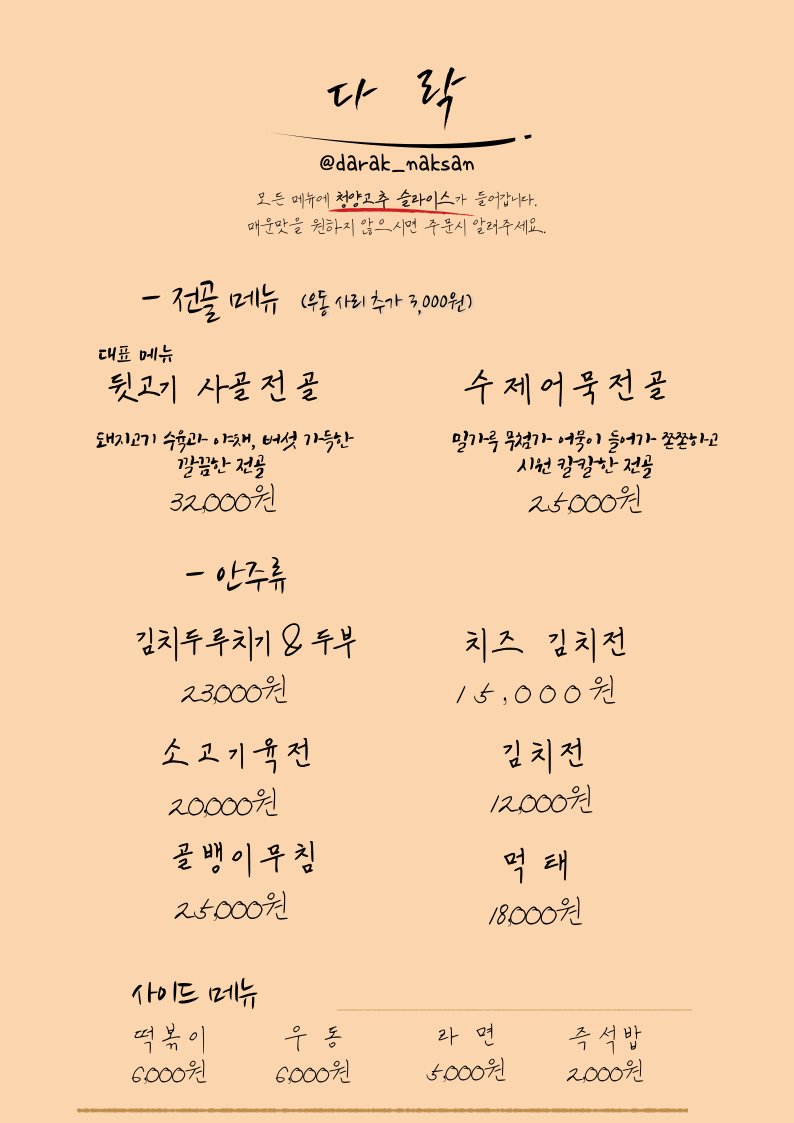 다 락
@darak_naksan
모든 메뉴에 청양고추 슬라이스가 들어갑니다.
매운맛을 원하지 않으시면 주문시 알려주세요.
- 전골 메뉴 (우동 사리 추가 3,000원)
대표 메뉴
뒷고기 사골전골
돼지고기 수육과 야채, 버섯 가득한
깔끔한 전골
32,000원
수제어묵전골
밀가루 무첨가 어묵이 들어가 쫀쫀하고
시원 칼칼한 전골
25,000원
- 안주류
김치두루치기 & 두부
23,000원
치즈 김치전
15,000원
소고기육전
20,000원
김치전
12,000원
골뱅이무침
25,000원
먹태
18,000원
사이드 메뉴
떡볶이
6,000원
우동
6,000원
라면
5,000원
즉석밥
2,000원